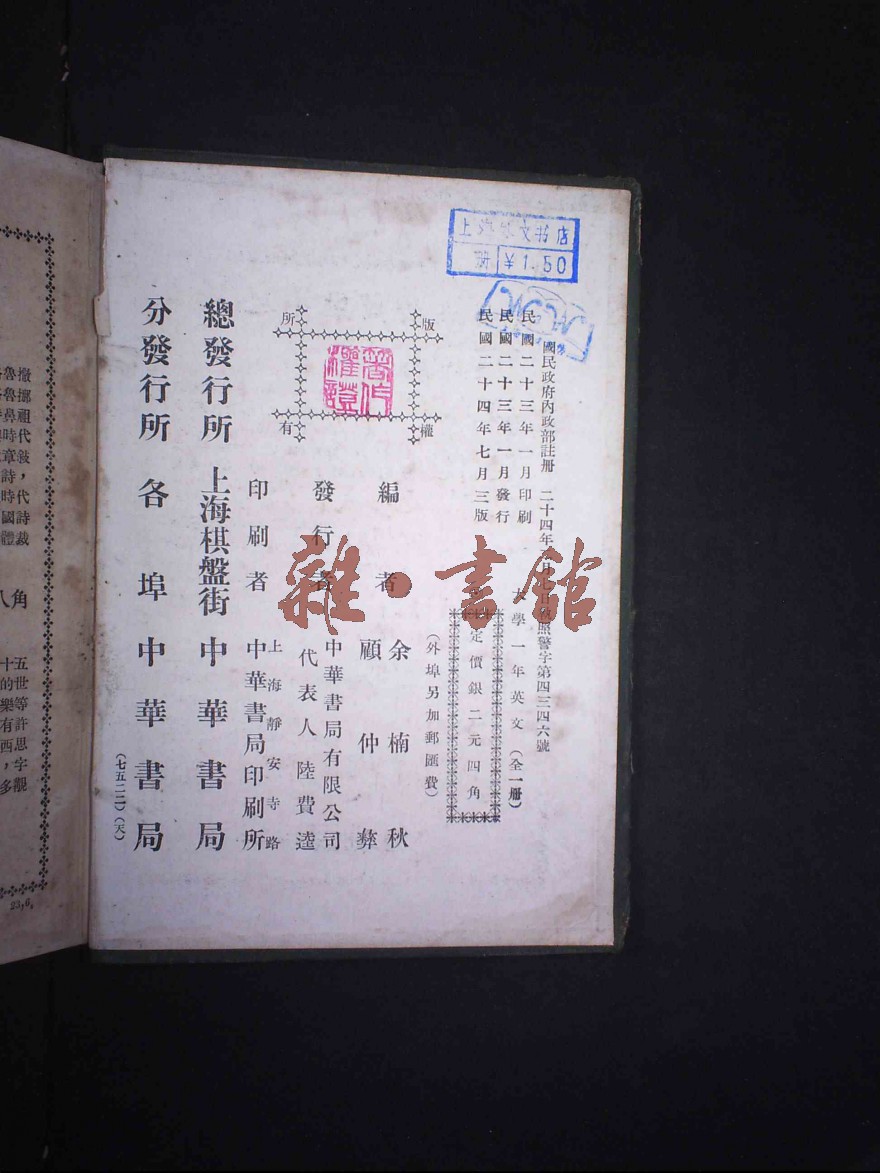 上海 文书店
¥1.50
國民政府內政部註册 二十四年 月 日 照警字第四三四六號
民國二十三年一月印刷
民國二十三年一月發行
民國二十四年七月三版
大學一年英文(全一册)
定價銀二元四角
(外埠另加郵匯費)
版權所有
編者 余楠秋
顧仲彝
發行者 中華書局有限公司
代表人 陸費逵
印刷者 上海靜安寺路
中華書局印刷所
總發行所 上海棋盤街 中華書局
分發行所 各埠 中華書局
(七五二二)(天)
雜·書館
撒
魯
挪
祖
代
敍
詩,
時代
國詩
體裁
八角
十五
的世
樂等
有許
西思
字
多觀
23,6,